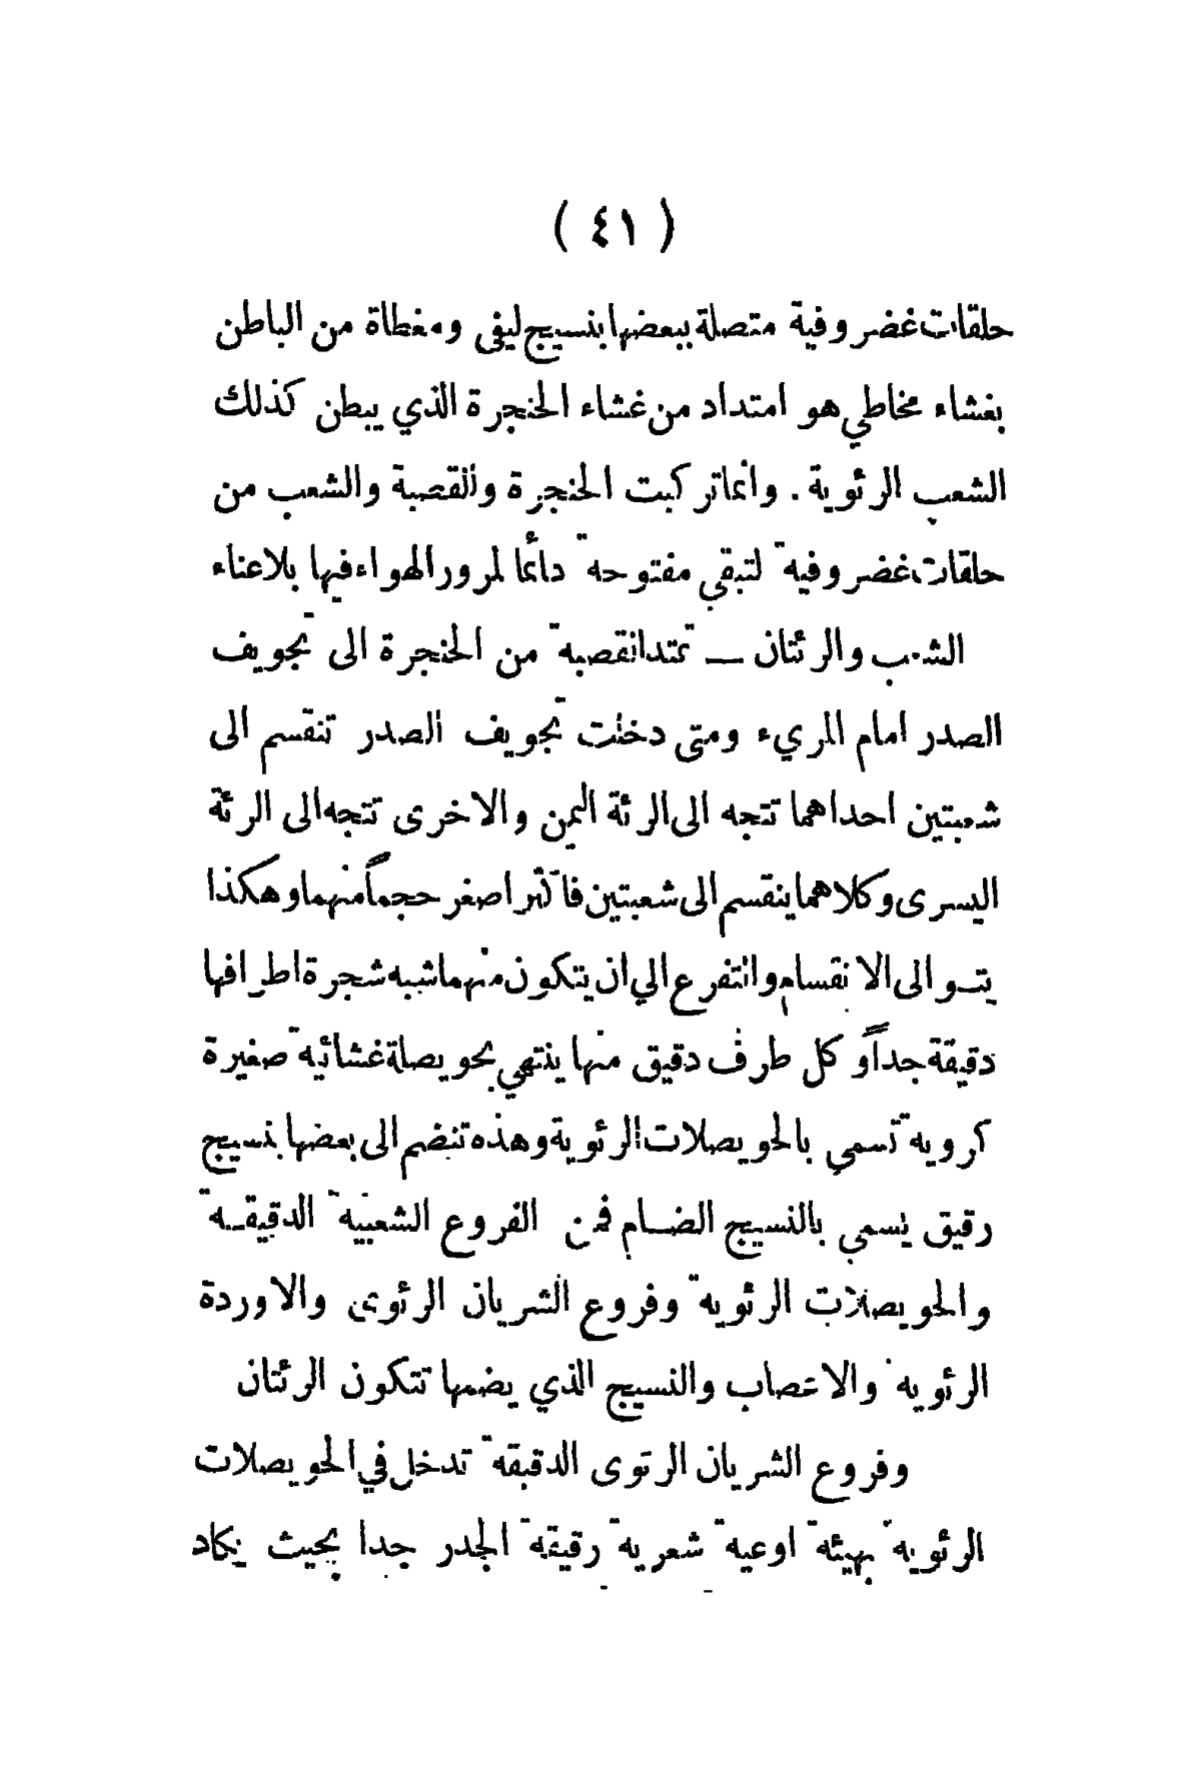 ( ٤١ )
حلقات غضروفية متصلة ببعضها بنسيج ليفي ومغطاة من الباطن
بغشاء مخاطي هو امتداد من غشاء الحنجرة الذي يبطن كذلك
الشعب الرئوية . وانما تركبت الحنجرة والقصبة والشعب من
حلقات غضروفية لتبقى مفتوحة دائما لمرور الهواء فيها بلا عناء
الشعب والرئتان — تمتد القصبة من الحنجرة الى تجويف
الصدر امام المريء ومتى دخلت تجويف الصدر تنقسم الى
شعبتين احداهما تتجه الى الرئة اليمن والاخرى تتجه الى الرئة
اليسرى وكلاهما ينقسم الى شعبتين فاكثر اصغر حجماً منهما وهكذا
يتـوالى الانقسام والتفرع الي ان يتكون منهما شبه شجرة اطرافها
دقيقة جداً وكل طرف دقيق منها ينتهي بحويصلة غشائية صغيرة
كروية تسمي بالحويصلات الرئوية وهذه تنضم الى بعضها بنسيج
رقيق يسمي بالنسيج الضـام فمن الفروع الشعبية الدقيقـة
والحويصلات الرئوية وفروع الشريان الرئوى والاوردة
الرئوية والاعصاب والنسيج الذي يضمها تتكون الرئتان
وفروع الشريان الرئوى الدقيقة تدخل في الحويصلات
الرئوية بهيئة اوعية شعرية رقيقة الجدر جدا بحيث يكاد